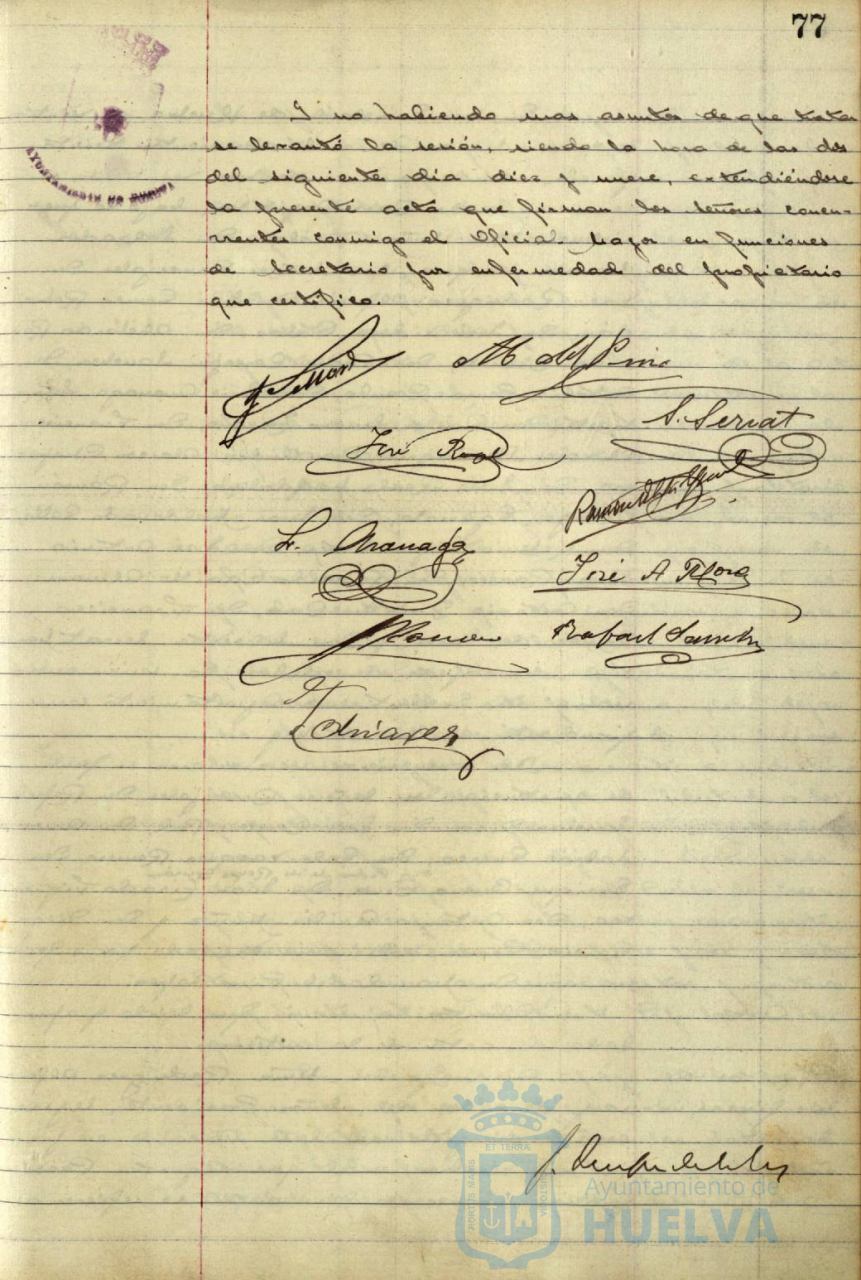 77
AYUNTAMIENTO DE HUELVA
Y no habiendo mas asuntos de que tratar
se levantó la sesión, siendo la hora de las dos
del siguiente día diez y nueve, extendiéndose
la presente acta que firman los señores concu-
rrentes conmigo el Oficial Mayor en funciones
de Secretario por enfermedad del propietario
que certifico.
M del Pino
S. Serrat
José
L.
José A Mora
Rafael
ET TERRA
PORTUS MARIS
CUSTODIA
Ayuntamiento de
HUELVA